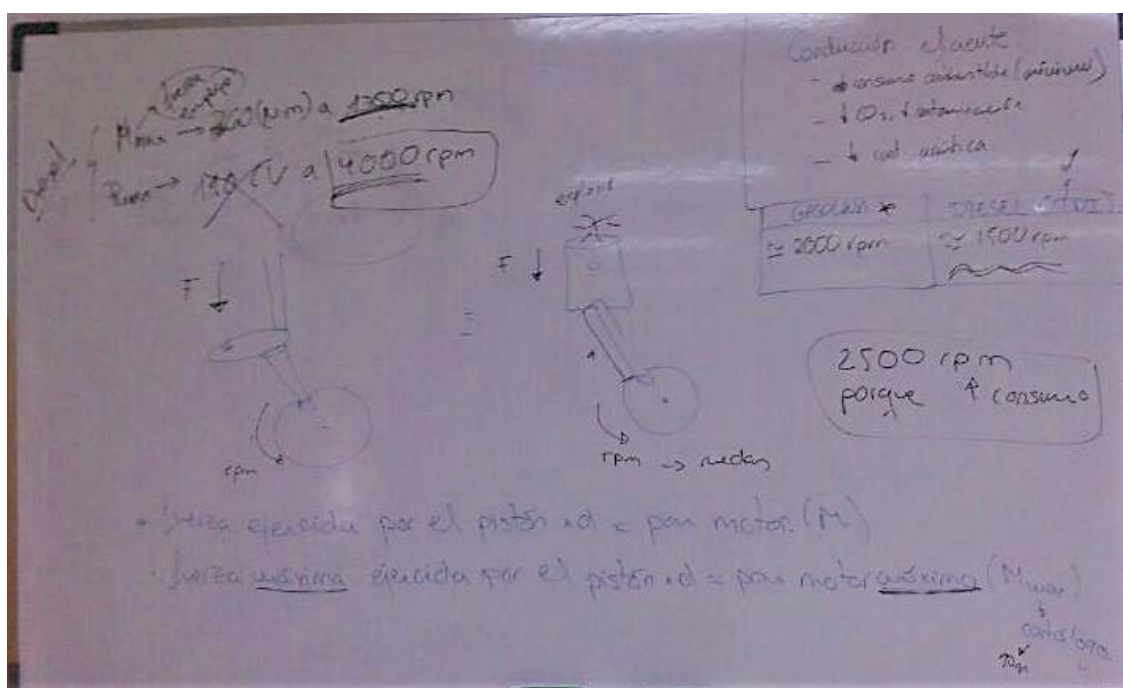 fuerza
empuje
Diesel
Mmax → 200 (Nm) a 1700 rpm
Pmax → CV a 4000 rpm
F ↓
rpm
≡
F ↓
rpm → ruedas
Conducción eficiente
- consumo combustible (mínimo)
- ↓
- ↓ cont. acústica
GASOLINA * DIESEL
≃ 2000 rpm ≃ 1500 rpm
2500 rpm
porque ↑ consumo
• fuerza ejercida por el pistón · d = par motor (M)
• fuerza máxima ejercida por el pistón · d = par motor máximo (Mmax)